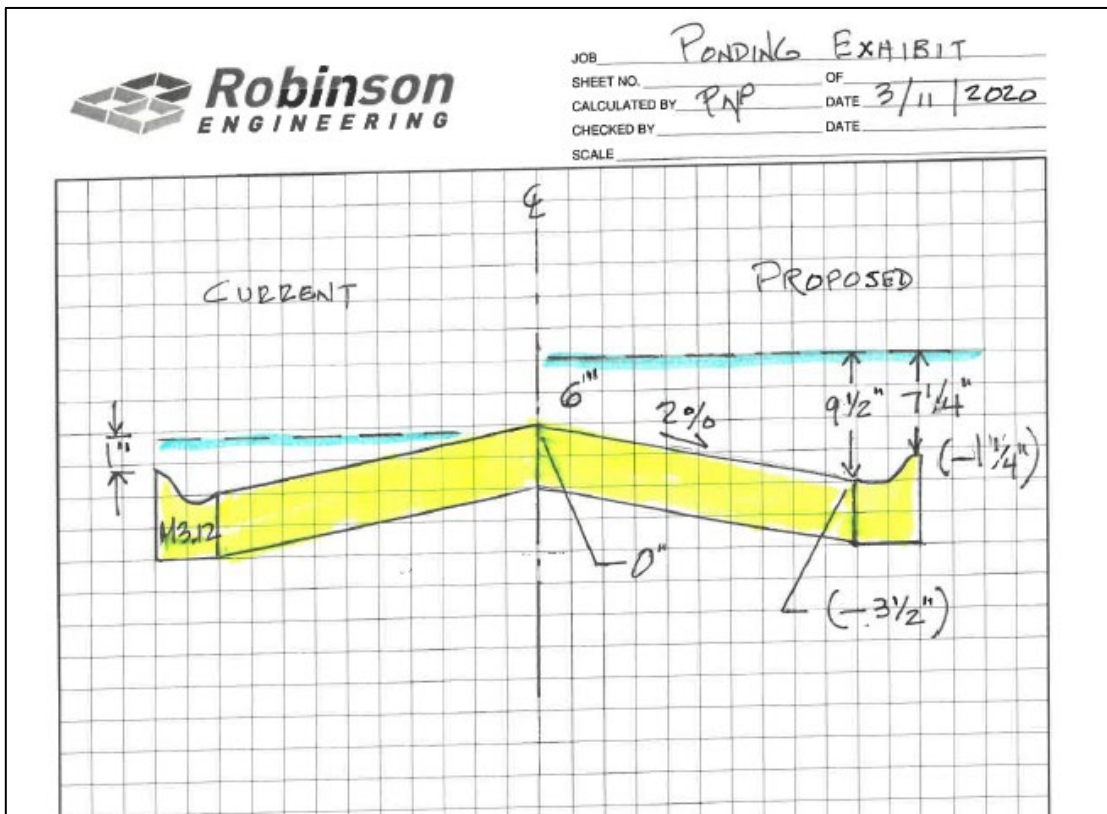 Robinson
ENGINEERING
JOB PONDING EXHIBIT
SHEET NO. OF
CALCULATED BY PNP DATE 3/11/2020
CHECKED BY DATE
SCALE
℄
CURRENT
PROPOSED
6"
2%
9 1/2" 7 1/4"
1"
(-1 1/4")
M3.12
0"
(-3 1/2")